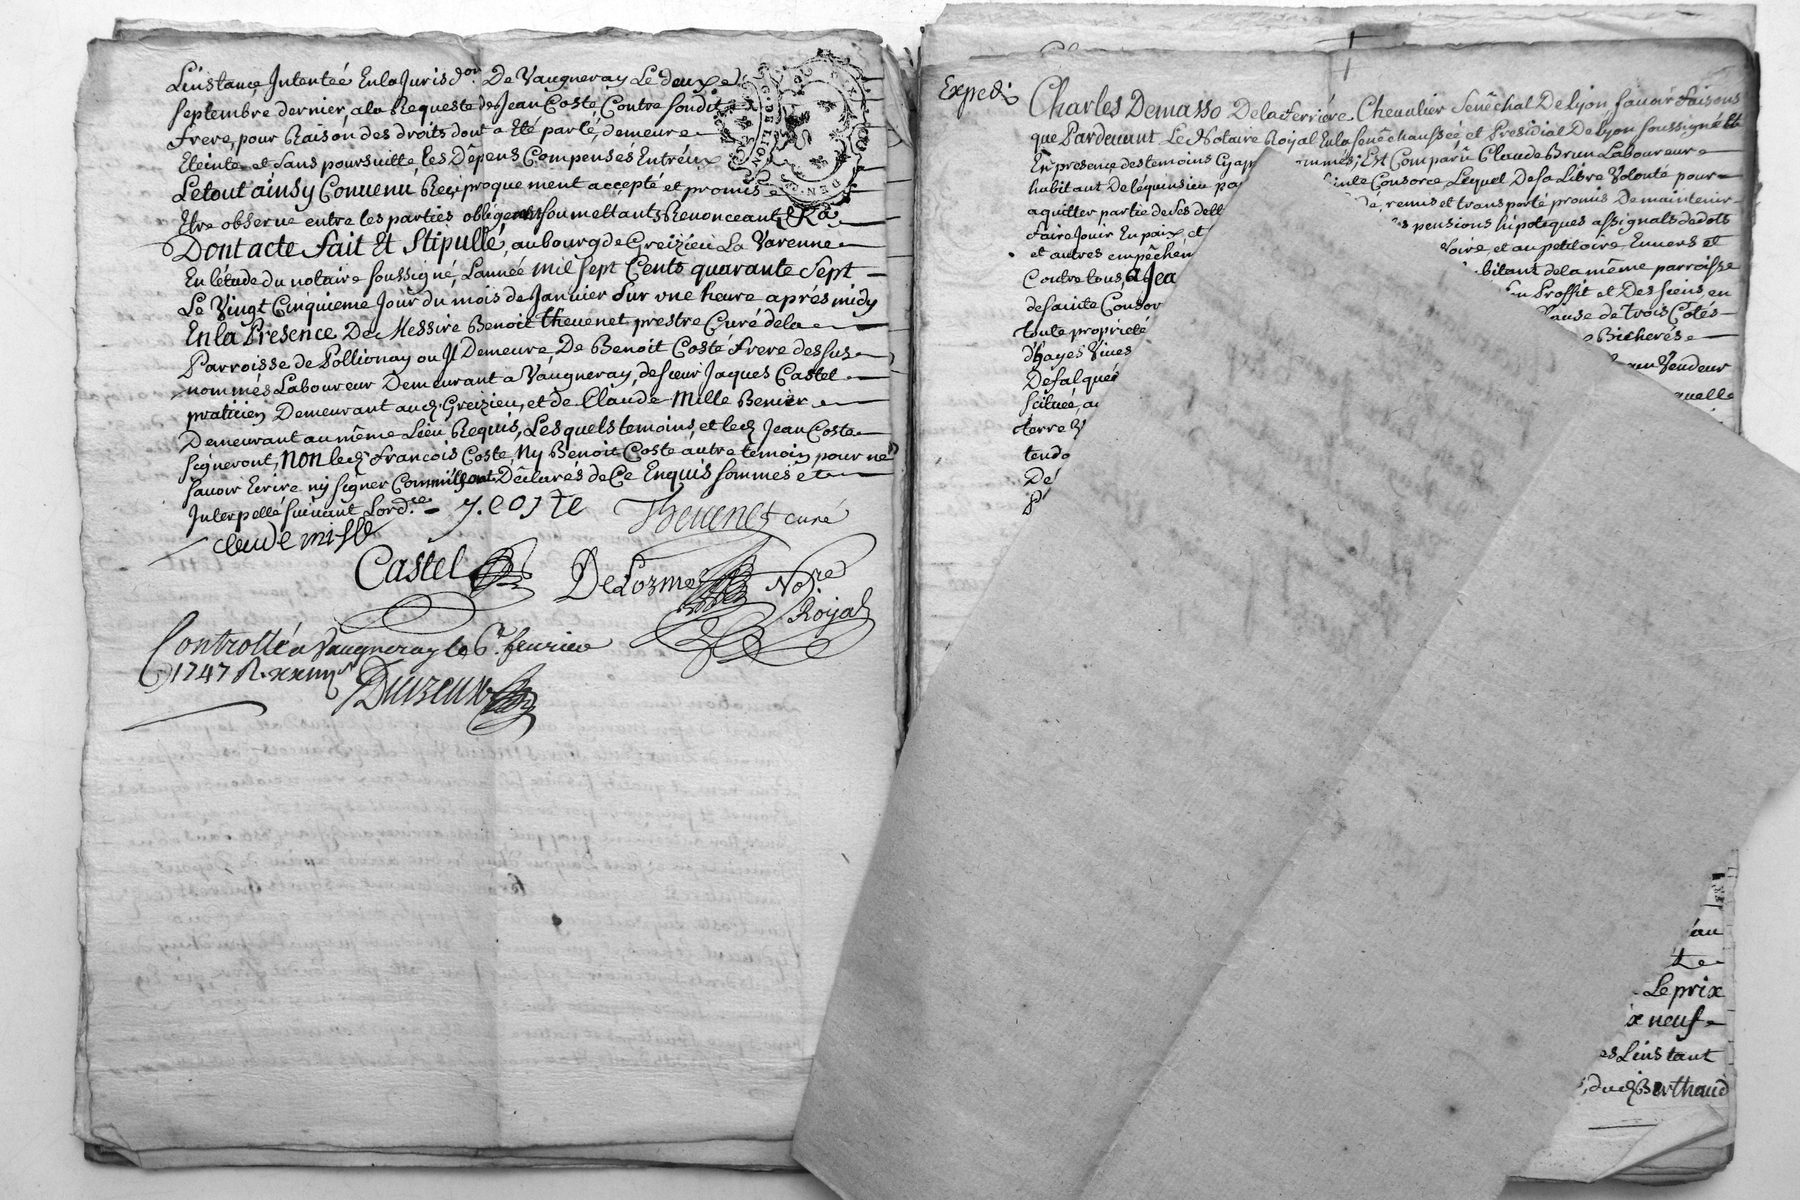 L'instance Intenteé En la Jurisd.on De Vaugneray Le deux e
Septembre dernier, a la Requeste de Jean Coste Contre son dit
frere, pour Raison des droits dont a Eté parlé, demeure
Eteinte et sans poursuitte, les Dêpens Compensés Entreux
Le tout ainsy Convenu, Reciproquement accepté et promis
Etre observé entre les parties obligeants soumettants Renonceant &Ra
Dont acte fait Et Stipullé, au bourg de Greizieu La Varenne
En l'étude du notaire soussigné, L'année Mil sept Cents quarante Sept
Le Vingt Cinquieme Jour du mois de Januier Sur une heure aprés midy
En la Presence De Messire Benoit Theuenet prestre Curé de la
Parroisse de Pollionay ou Il Demeure, De Benoit Coste frere dessus
nommés Laboureur Demeurant a Vaugneray, de sieur Jaques Castel
praticien Demeurant aud. Greizieu, et de Claude Mille
Demeurant au même Lieu Requis, Lesquels temoins, et led. Jean Coste
signeront, non led. francois Coste, Ny Benoit Coste autre temoin pour ne
sauoir Ecrire ny signer Comm'ils ont Déclarés de Ce Enquis sommés et
Interpellé suiuant Lord.ce
J. COSTE Theuenet curé
claude mille
Castel DeLorme No.re
Royal
Controllé a Vaugneray le 6.e feurier
1747 R. xxiiij s
Duizeux
DE LION
Exped.
Charles Demasso De la ferriere Cheualier Senêchal De Lyon sauoir faisons
que Pardeuant Le Notaire Royal En la senêchaussée et Presidial De Lyon soussigné Et
En presence des temoins Cy ap ommés; Est Comparû Claude Brun Laboureur
habitant De Léquinsieu pa inte Consorce Lequel De sa Libre Volonté pour
aquitter partie de ses dett de, remis et transporté promis De maintenir
faire Jouir En paix, et s pensions hipotéques assignals de dots
et autres empêchem oire et au petitoire Enuers et
Contre tous, a Jea bitant de la même parroisse
de Sainte Consor on Proffit et Des siens, en
toute proprieté lause de trois Côtés
d'hayes Viues Bicherés
Defalqué au Vendeur
scituée, a quelle
terre
tend
De
P
au
te
Le prix
x neuf
es L'instant
, dud. Berthaud